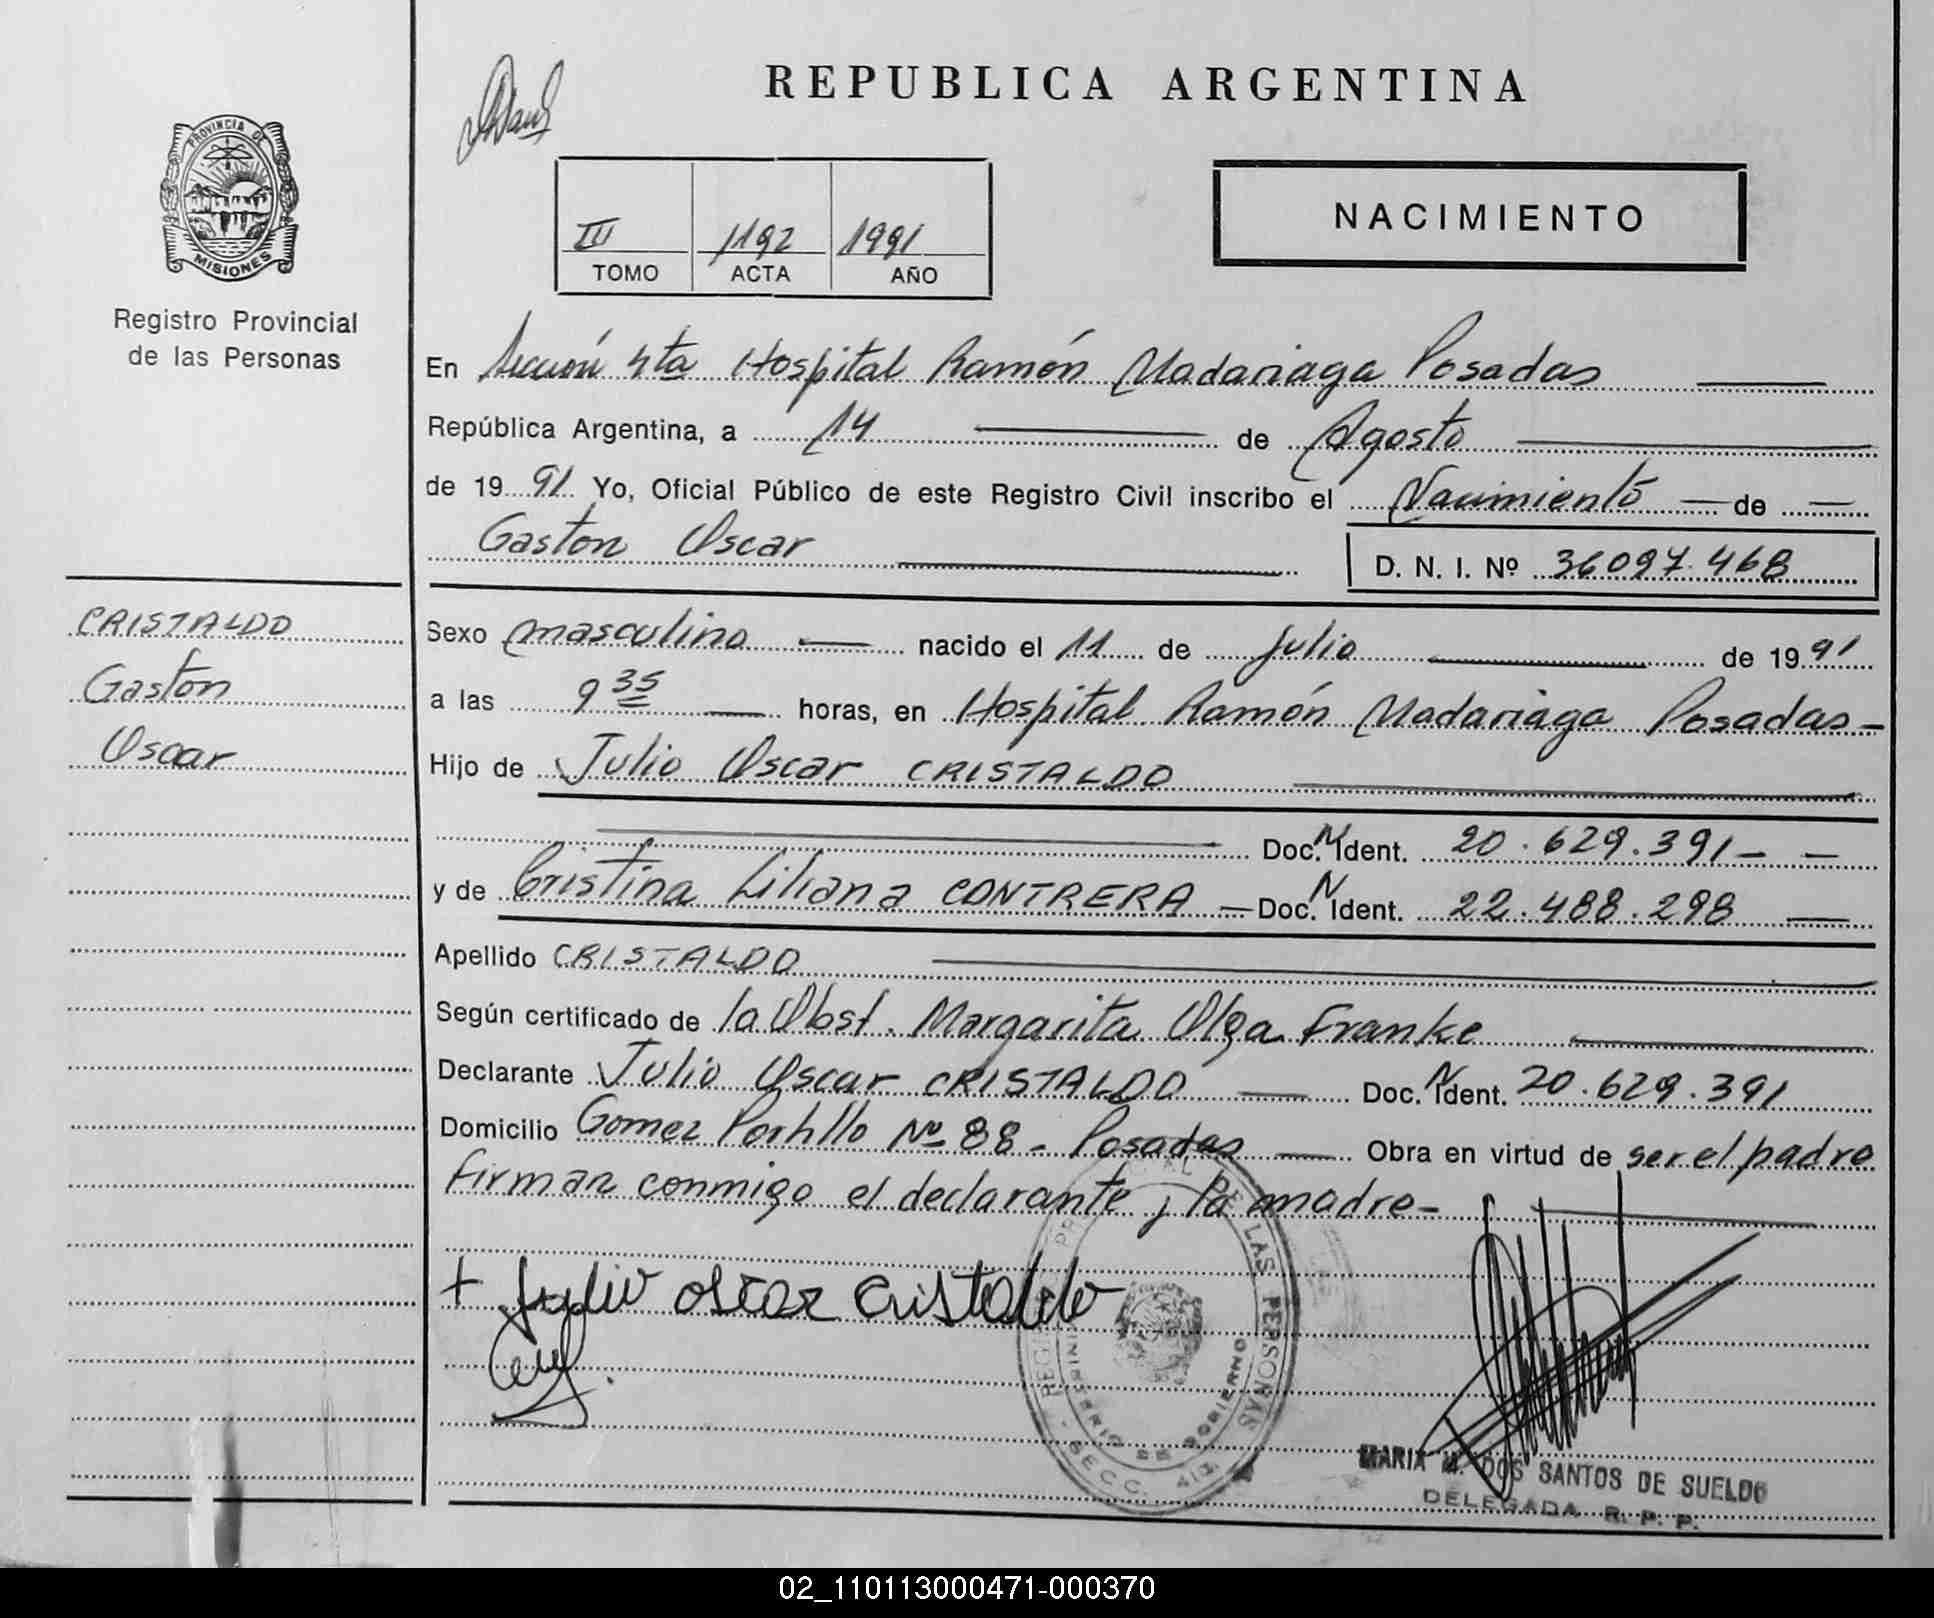 REPUBLICA ARGENTINA
PROVINCIA DE
MISIONES
Registro Provincial
de las Personas
NACIMIENTO
III 1192 1991
TOMO ACTA AÑO
En Sección 4ta Hospital Ramón Madariaga Posadas
República Argentina, a 14 de Agosto
de 1991 Yo, Oficial Público de este Registro Civil inscribo el Nacimiento de
Gaston Oscar
D. N. I. Nº 36097.468
CRISTALDO
Gaston
Oscar
Sexo masculino nacido el 11 de Julio de 1991
a las 9 35 horas, en Hospital Ramón Madariaga Posadas-
Hijo de Julio Oscar CRISTALDO
Doc. N Ident. 20.629.391-
y de Cristina Liliana CONTRERA Doc. N Ident. 22.488.298
Apellido CRISTALDO
Según certificado de la Obst. Margarita Olga Franke
Declarante Julio Oscar CRISTALDO Doc. N Ident. 20.629.391
Domicilio Gomez Portillo Nº 88- Posadas Obra en virtud de ser el padre
firman conmigo el declarante y la madre-
+ Julio oscar Cristaldo
DE LAS PERSONAS
MINISTERIO DE GOBIERNO
SECC. 4ta.
MARIA M. DOS SANTOS DE SUELDO
DELEGADA R. P. P.
02_110113000471-000370